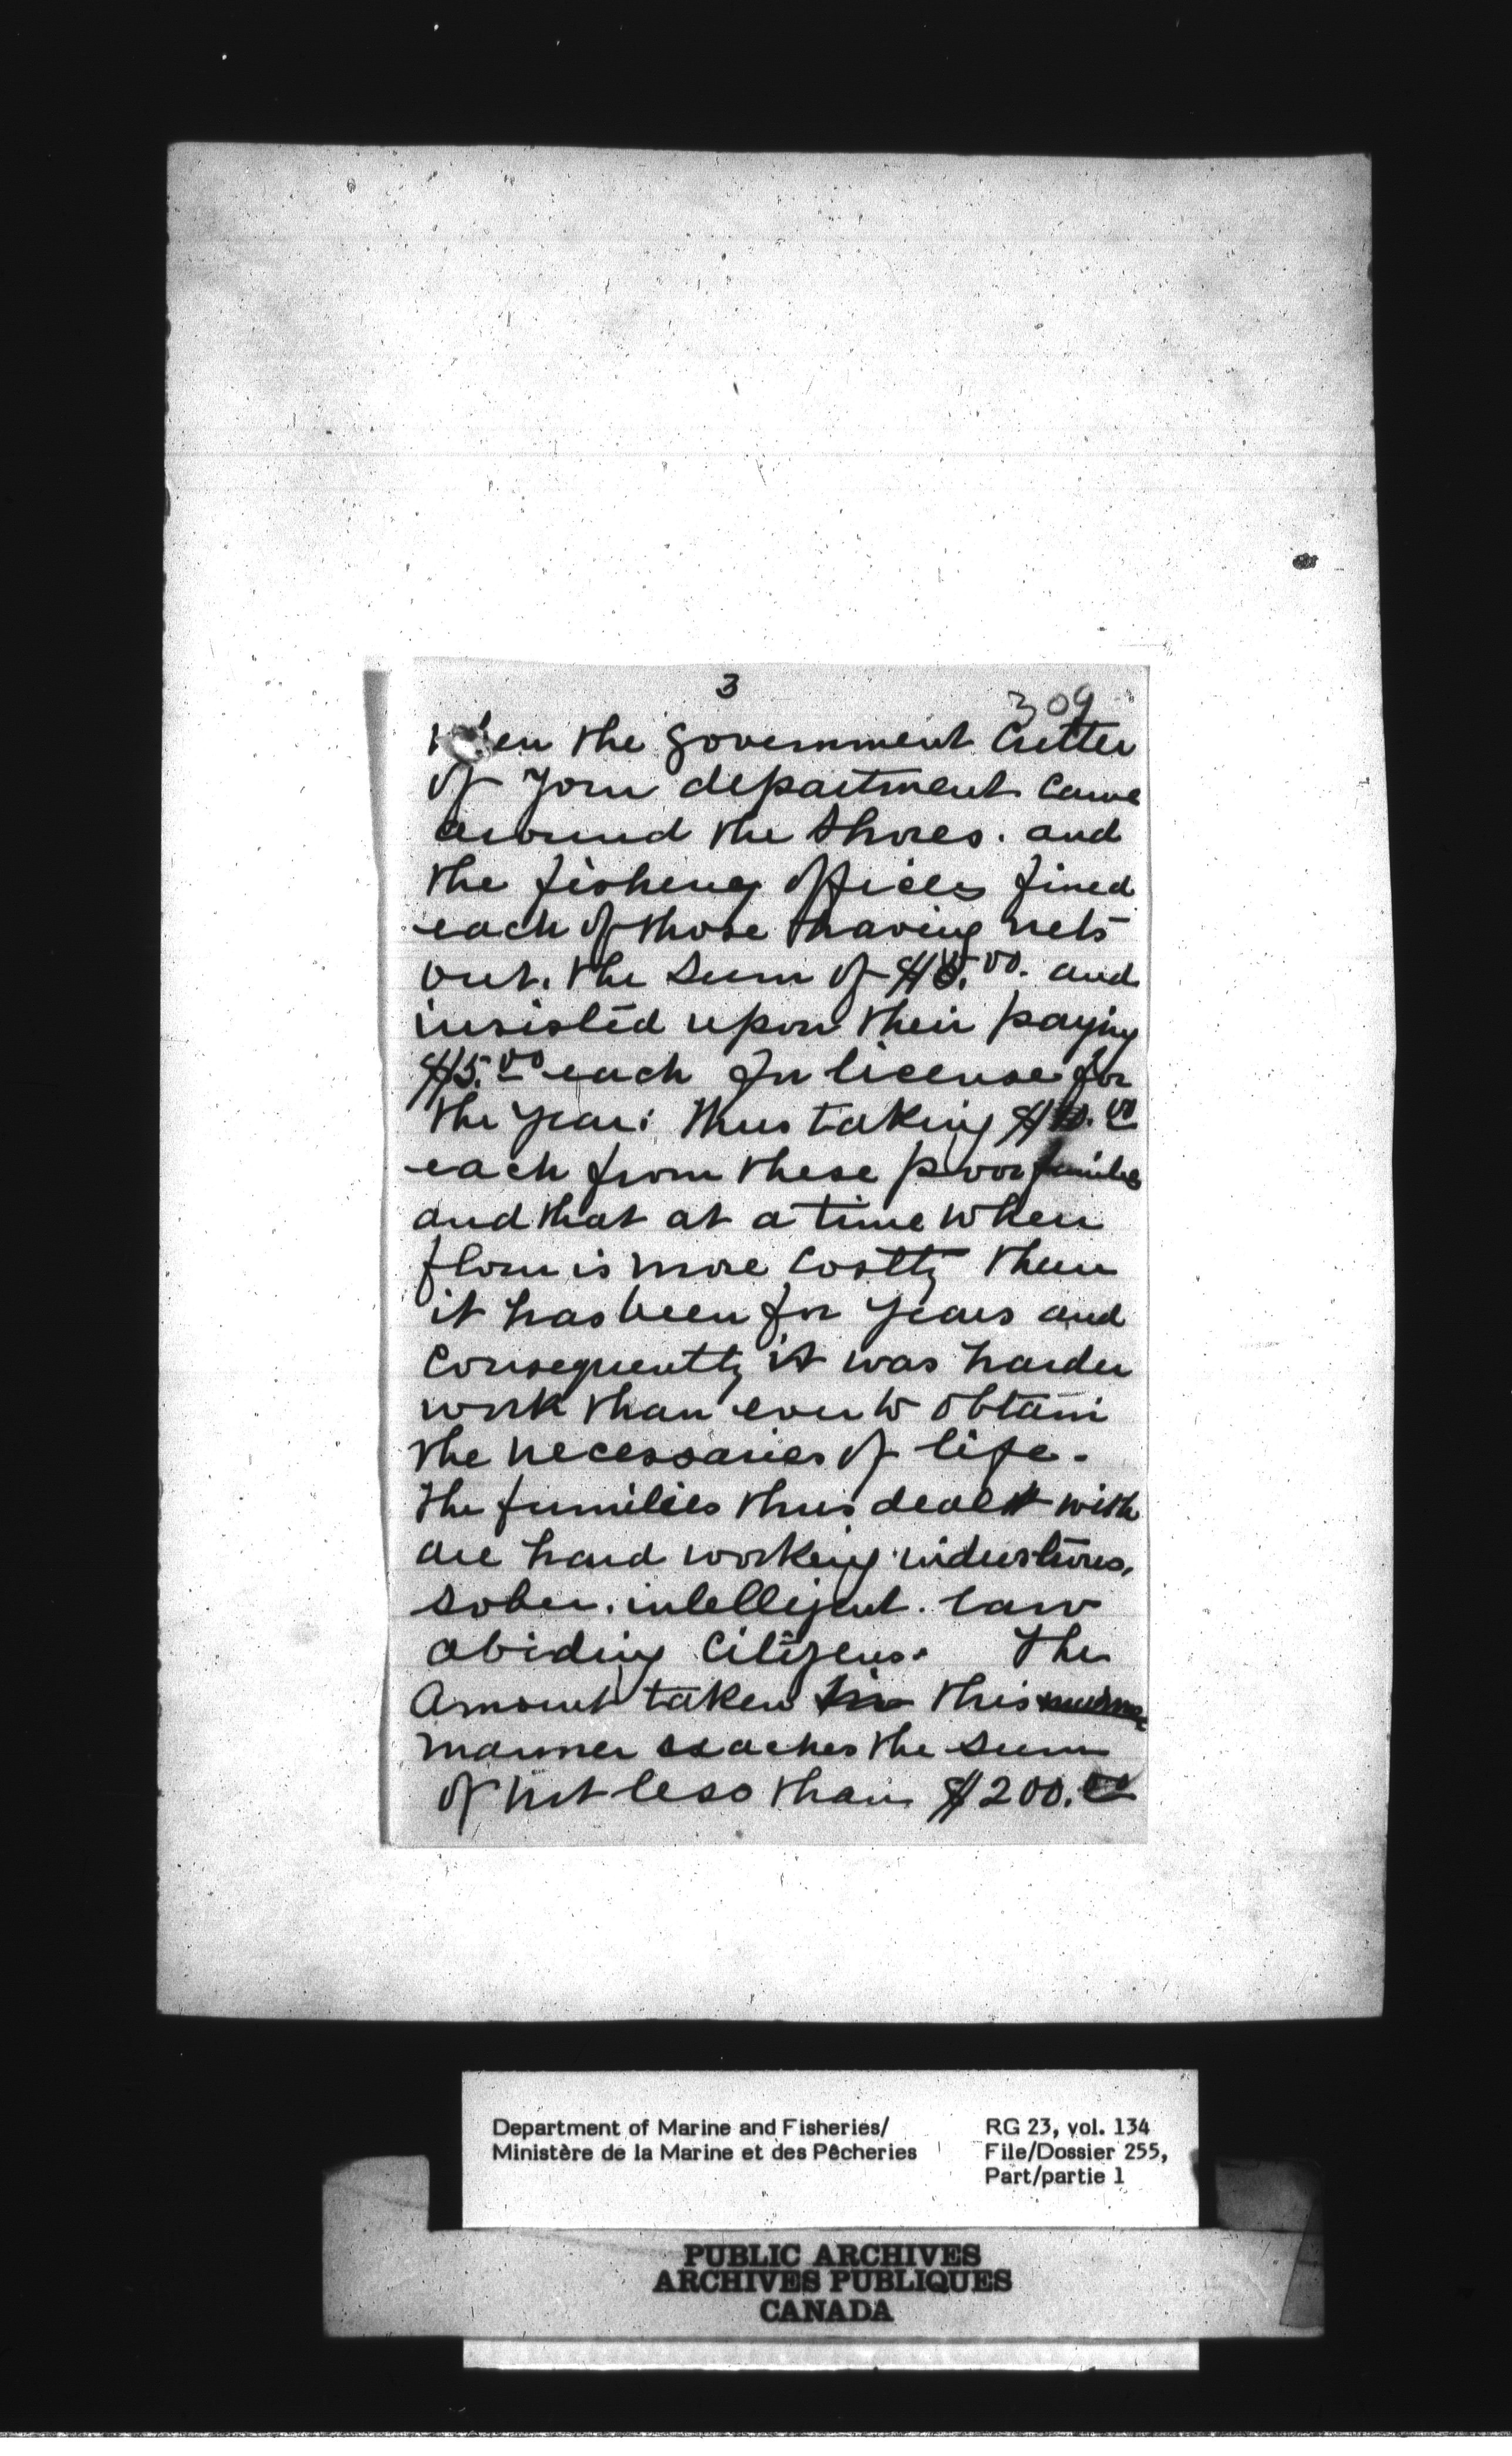 3
309
when the Government Cutter
of your department came
around the shores. and
the fishery officers fined
each of those having nets
out. the sum of $5.00. and
insisted upon their paying
$5.00 each for license for
the year: thus taking $10.00
each from these poor families
and that at a time when
flour is more costly than
it has been for years and
consequently it was harder
work than ever to obtain
the necessaries of life.
the families thus dealt with
are hard working industrious,
sober. intelligent. law
abiding citizens. The
amount taken in this
manner reaches the sum
of not less than $200.00
Department of Marine and Fisheries/
Ministère de la Marine et des Pêcheries
RG 23, vol. 134
File/Dossier 255,
Part/partie 1
PUBLIC ARCHIVES
ARCHIVES PUBLIQUES
CANADA